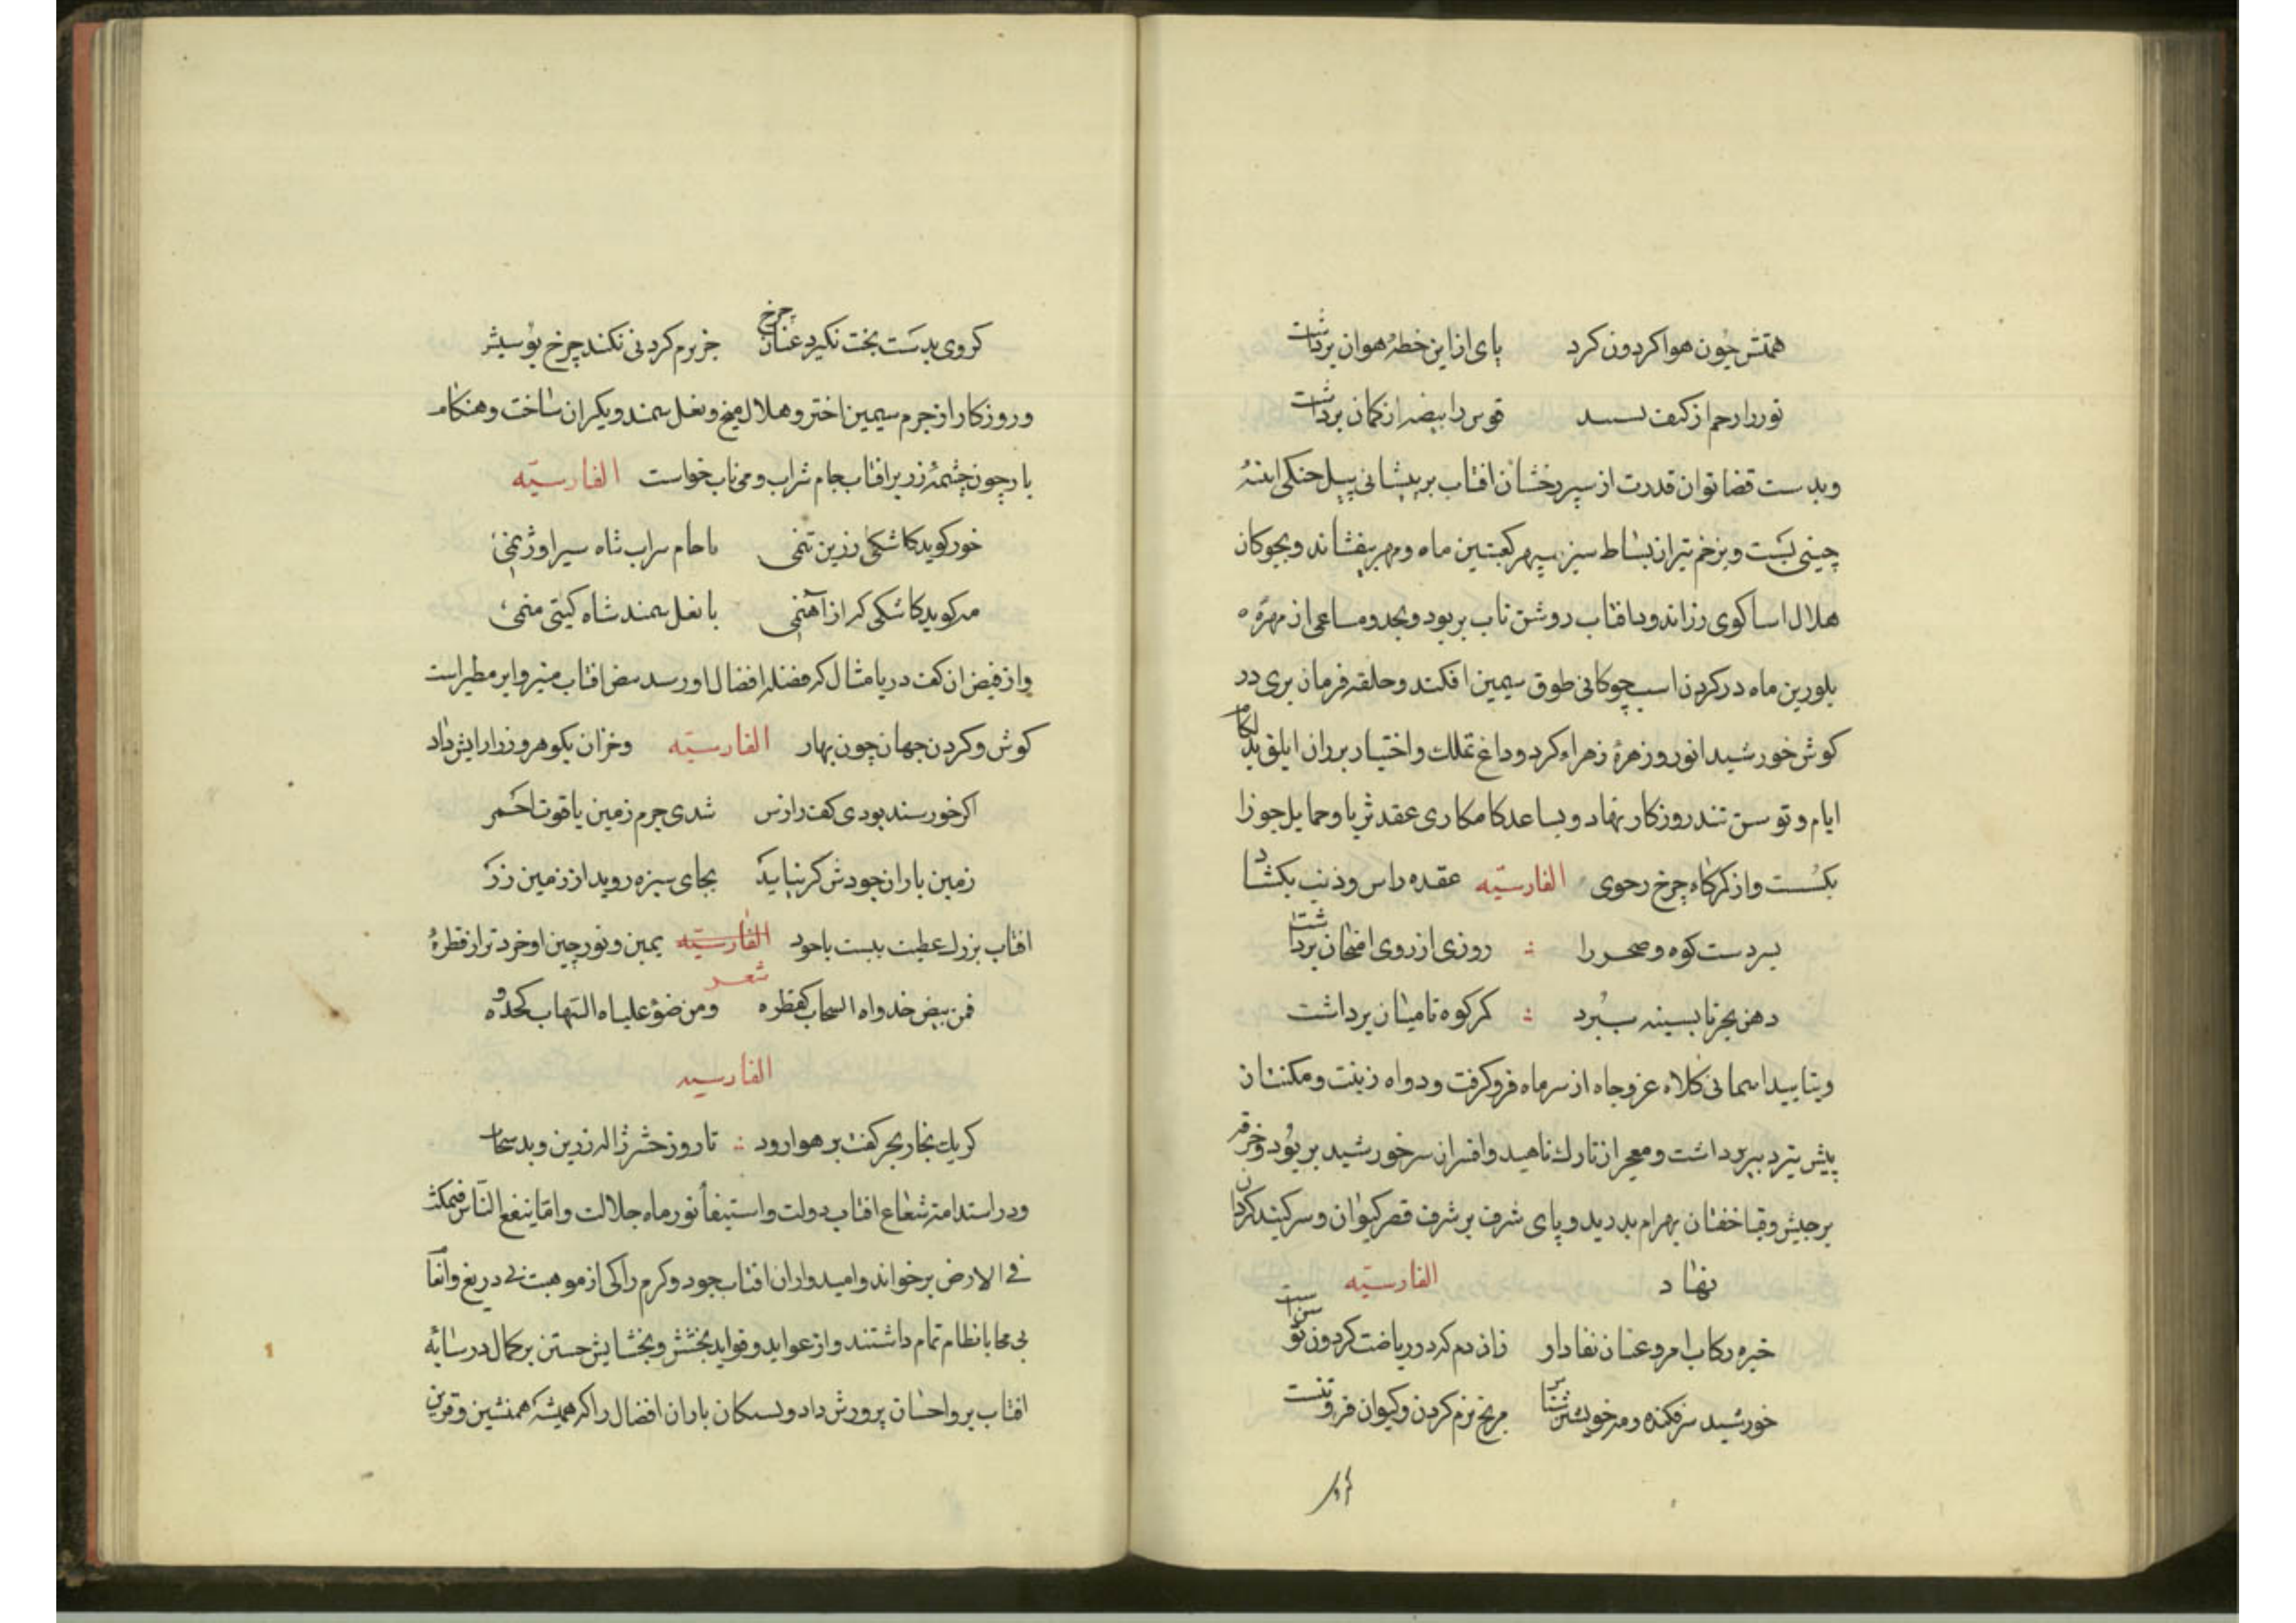 همتش چون هوا کردون کرد پای از این خطهٔ هوان برداشت
ثور را رحم از کتف قوس را بیضه از کمان برداشت
وبدست قضا توان قدرت از سپر رخشان افتاب بر پیشانی پیل جنکی اینهٔ
چینی بست وبزخم تیر از بساط سبز سپهر کعبتین ماه ومهر بیفشاند وبچوکان
هلال اسا کوی زر اندود افتاب روشن تاب بربود وبجد ومساعی از مهرهٔ
بلورین ماه در کردن اسب چوکانی طوق سیمین افکند وحلقه فرمان بری در
کوش خورشید انور وزهرهٔ زهراء کرد وداغ تملك واختیار بر ران ابلق بدلکام
ایام وتوسن تند روزکار نهاد وبساعد کامکاری عقد ثریا وحمایل جوزا
بکسست واز کمرکاه چرخ رحوی الفارسیّه عقده راس وذنب بکشاد
بسر دست کوه وصحرا را روزی از روی امتحان برداشت
دهن بحر تا بسینه سپرد کمر کوه تا میان برداشت
وبتایید اسمانی کلاه عز وجاه از سر ماه فرو کرفت ودواه زینت ومکنت از
پیش تیر دبیر برداشت ومعجر از تارك ناهید وافسر از سر خورشید بربود وخرقه
برجیش وقبا خفتان بهرام بدرید وپای شرف بر شرف قصر کیوان وسر کیند کردان
نهاد الفارسیّه
خیره رکاب امر وعنان نفاد او زان دم که در ریاضت کردون توسن است
خورشید سر فکنده ومه خویشتن شناس مریخ نرم کردن وکیوان فروتنست
کر وی بدست بخت نکیرد عنان چرخ جز نرم کردنی نکند چرخ توسنیش
وروزکار از جرم سیمین اختر وهلال میخ ونعل سمند ویکران ساخت وهنکام
بار چون چشمهٔ زر برافتاب جام شراب ومی ناب خواست الفارسیّه
خور کوید کاشکی زرین تنمی با جام شراب شاه شیراوژنمی
مه کوید کاشکی که از آهنمی با نعل سمند شاه کیتی منمی
واز فیض ان کف دریا مثال که فضله افضال او رسد فیض افتاب منیر وابر مطیر است
کوش وکردن جهان چون بهار الفارسیّه وخزان بکوهر وزر ارایش داد
اکر خورشید بودی کف رادش شدی جرم زمین یاقوت احمر
زمین باران جودش کر بیابد بجای سبزه روید از زمین زر
افتاب بزرك عطیت بیست با جود الفارسیّه یمین ونور جبین او خرد تر از قطرهٔ
شعر
فمن بیض جدواه السحاب کقطره ومن ضوء علیاه الشهاب کجذوه
الفارسیه
کر یك بخار بحر کفت بر هوا رود تا روز حشر ژاله زرین وبد سحاب
ودر استدامت شعاع افتاب دولت واستیفاء نور ماه جلالت واما ینفع النّاس فیمکث
فی الارض برخواند وامیدواران افتاب جود وکرم را کی از موهبت بی دریغ وانعام
بی محابا نظام تمام داشتند واز عواید وفواید بخشش وبخشایش جستن بر کمال در سایهٔ
افتاب بر واحسان پرورش داد وبستکان باران افضال را که همیشه همنشین وقرین